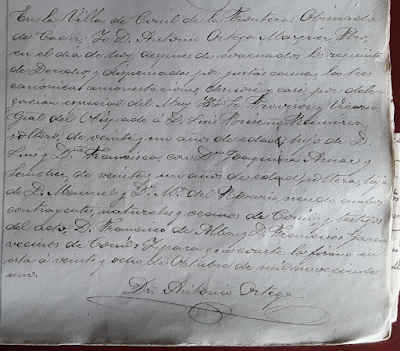 En la Villa de Conil de la Frontera Obispado
de Cadiz, Yo D. Antonio Ortega Marquez Pbro,
en el dia de hoy, despues de evacuados los requisitos
de Derecho y dispensadas por justas causas las tres
canonicas amonestaciones desposé y casé por dele-
gacion especial del Muy Provisor y Vicario
Gral del Obispado á D. Luis Romero
soltero, de veinte y un años de edad, hijo de D.
Luis y Dña Francisca, con Dña Joaquina Aznar y
Sanchez, de veinte y un años de edad, soltera, hija
de D. Manuel y Dª Mª del Rosario, siendo ambos
contrayentes, naturales y vecinos de Conil, y testigos
del acto, D. Francisco de Alba y D. Francisco Garcia
vecinos de Conil. Y para que conste lo firmo en
esta á veinte y ocho de Octubre de mil novecientos
uno.
Dr. Antonio Ortega